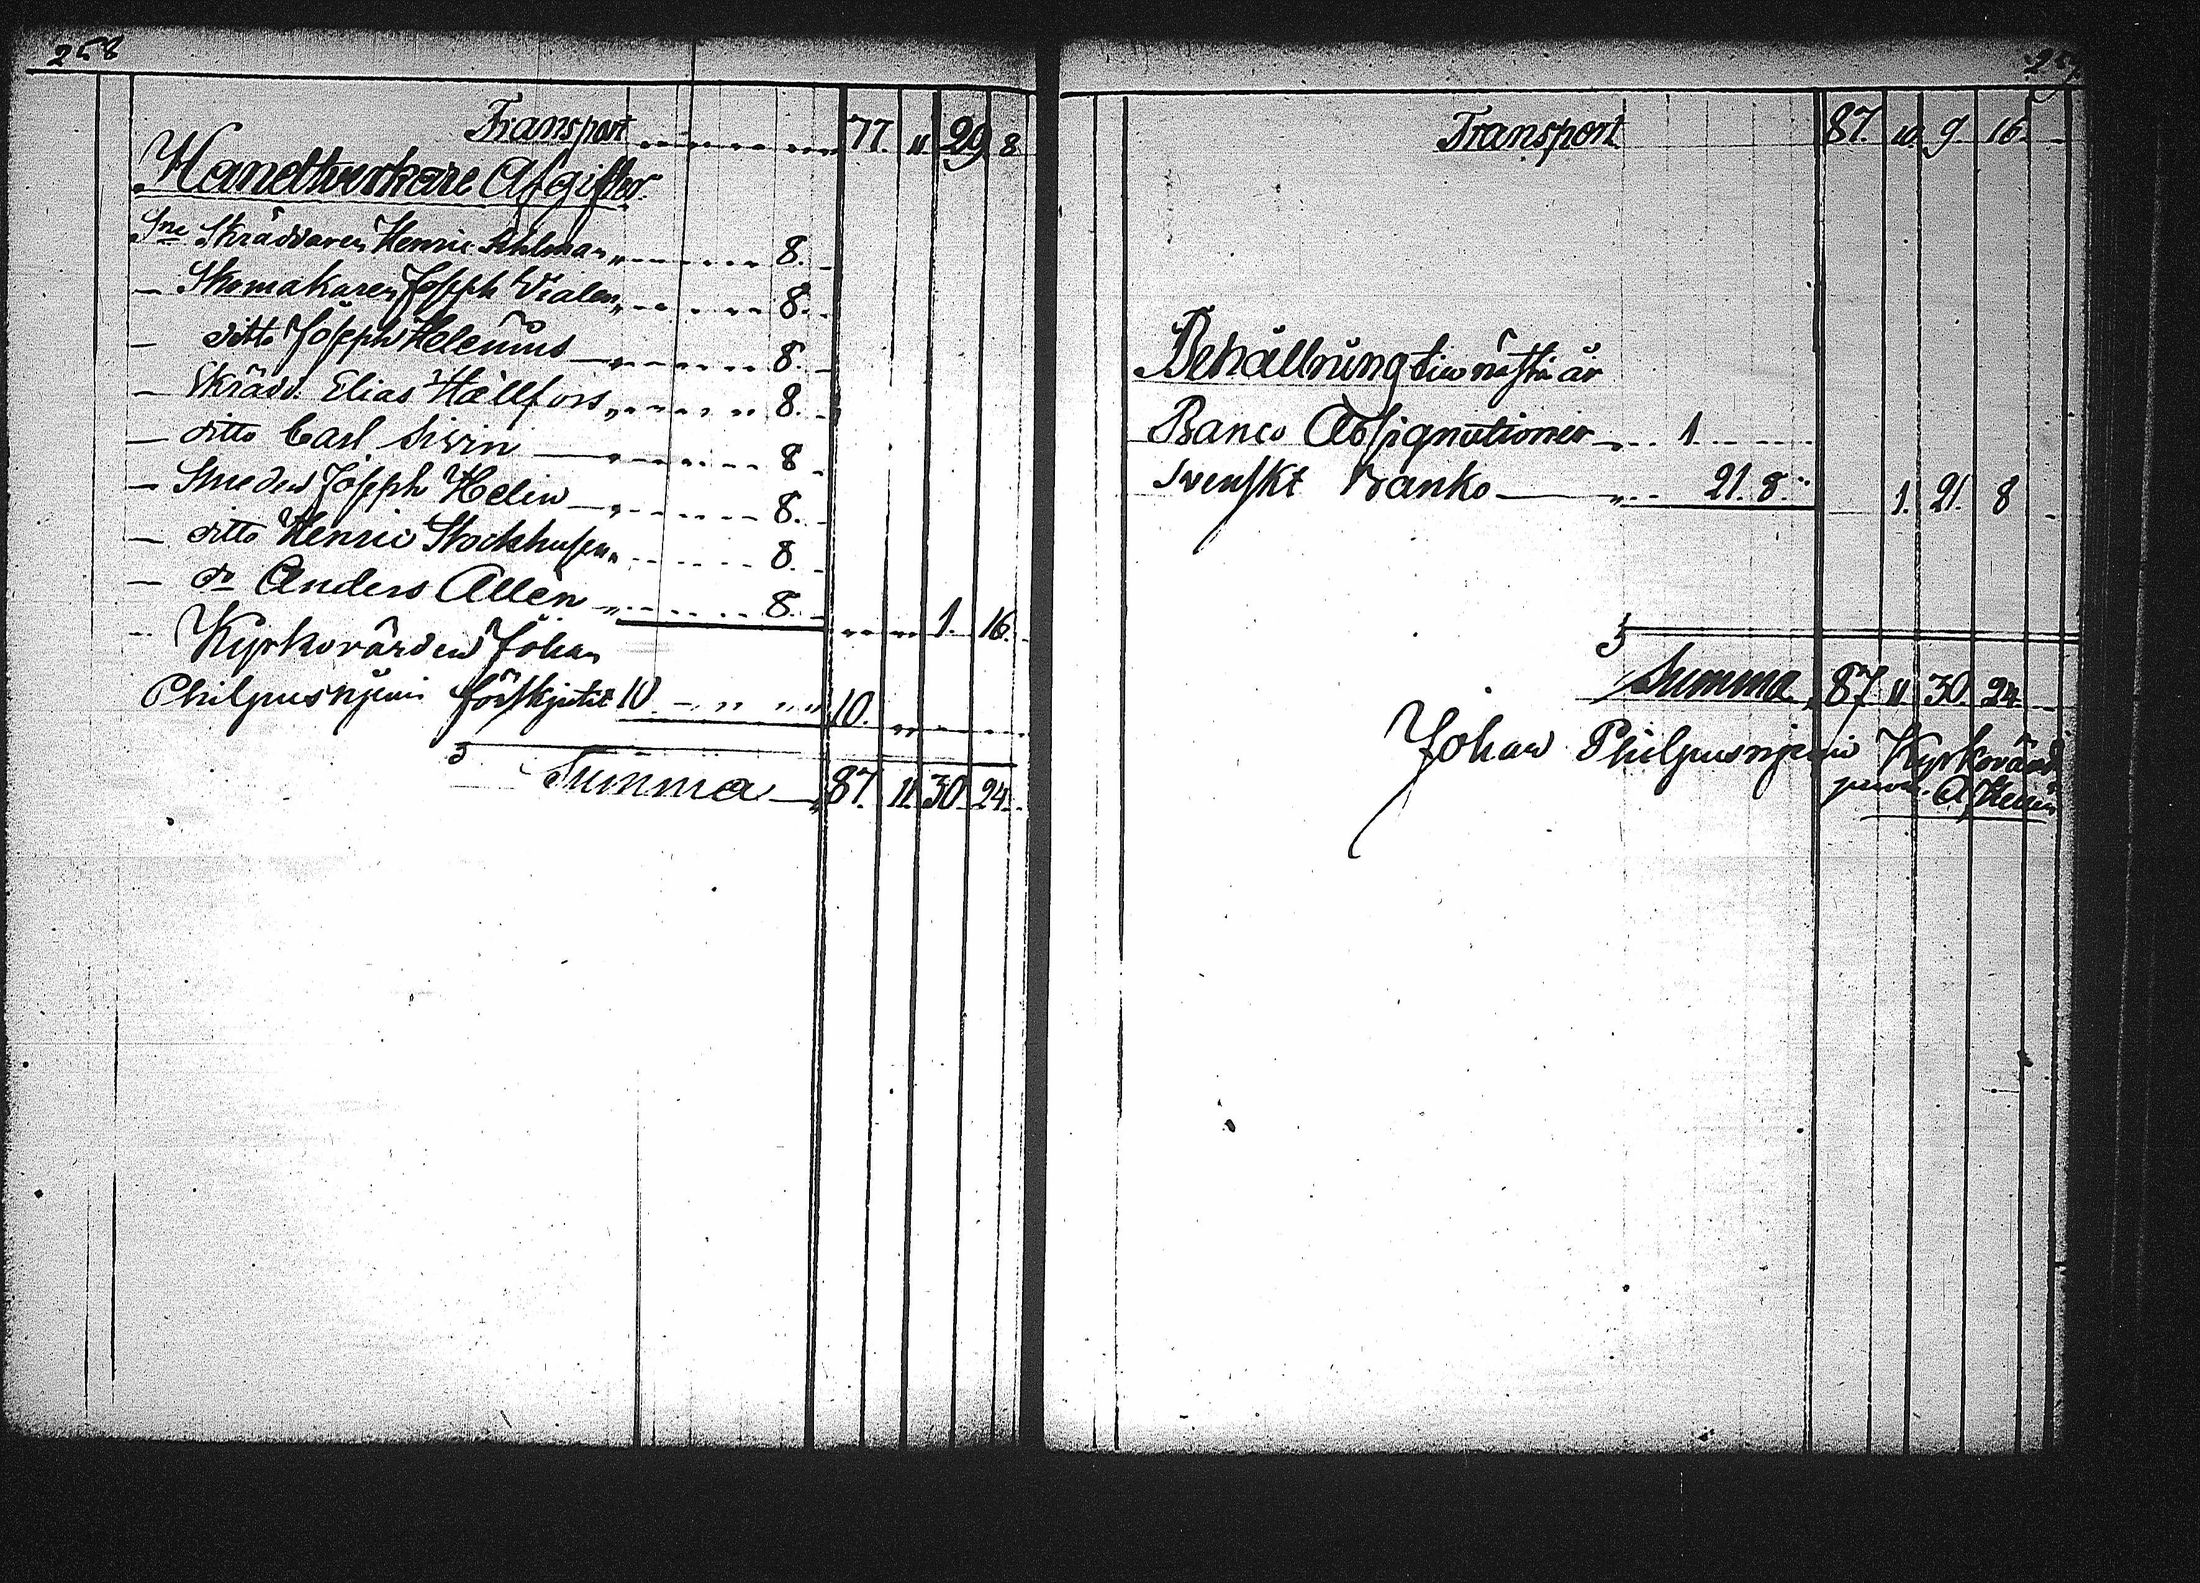 258
Transport 77. 11 29 8
Handtverkare Afgifter
Skräddaren Henric Ahlman 8.
— Skomakaren Joseph Vialen 8.
— ditto Joseph Helenius 8.
— Skrädd. Elias Hällfors 8.
— ditto Carl 8
— Smeden Joseph Helin 8.
— ditto Henric 8
— do Anders Allén 8. 1. 16.
Kyrkovärden Johan
Philpusnjemi förskjutit 10 10.
Summa 87. 11. 30. 24.
259
Transport 87. 10. 9. 16.
Behållning till nästa år
Banco Assignationer 1
Svenskt Banko 21. 8. 1. 21. 8
Summa 87. 11. 30. 24
Johan Philpusnjemi Kyrkovärd